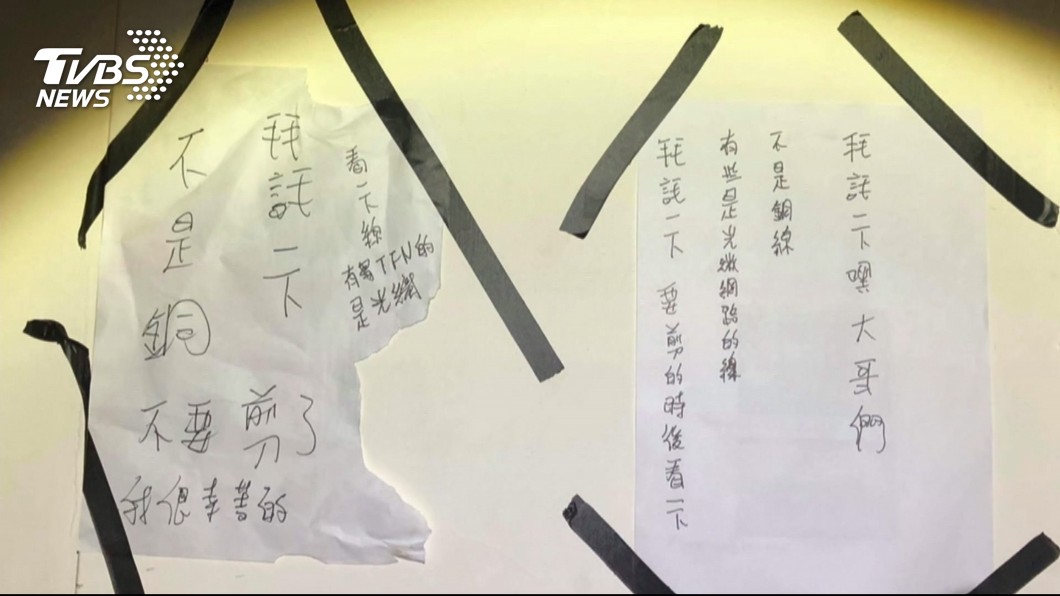 TVBS
NEWS
看一下線
有寫TFN的
是光纖
拜託一下
不是銅
不要剪了
我很幸苦的
拜託一下嘿大哥們
不是銅線
有些是光纖網路的線
拜託一下 要剪的時後看一下